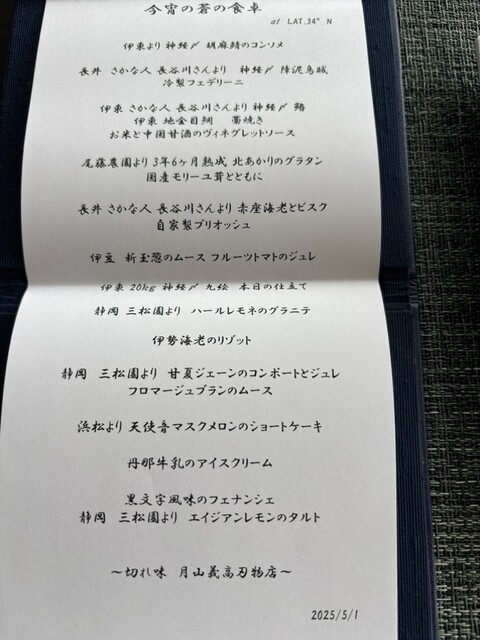 今宵の蒼の食卓
at LAT.34° N
伊東より 神経〆 胡麻鯖のコンソメ
長井 さかな人 長谷川さんより 神経〆 障泥烏賊
冷製フェデリーニ
伊東 さかな人 長谷川さんより 神経〆 鰆
伊東 地金目鯛 藁焼き
お米と中国甘酒のヴィネグレットソース
尾藤農園より 3年6ヶ月熟成 北あかりのグラタン
国産モリーユ茸とともに
長井 さかな人 長谷川さんより 赤座海老とビスク
自家製ブリオッシュ
伊豆 新玉葱のムース フルーツトマトのジュレ
伊東 20kg 神経〆 九絵 本日の仕立て
静岡 三松園より ハールレモネのグラニテ
伊勢海老のリゾット
静岡 三松園より 甘夏ジェーンのコンポートとジュレ
フロマージュブランのムース
浜松より 天使音マスクメロンのショートケーキ
丹那牛乳のアイスクリーム
黒文字風味のフェナンシェ
静岡 三松園より エイジアンレモンのタルト
〜切れ味 月山義高刃物店〜
2025/5/1